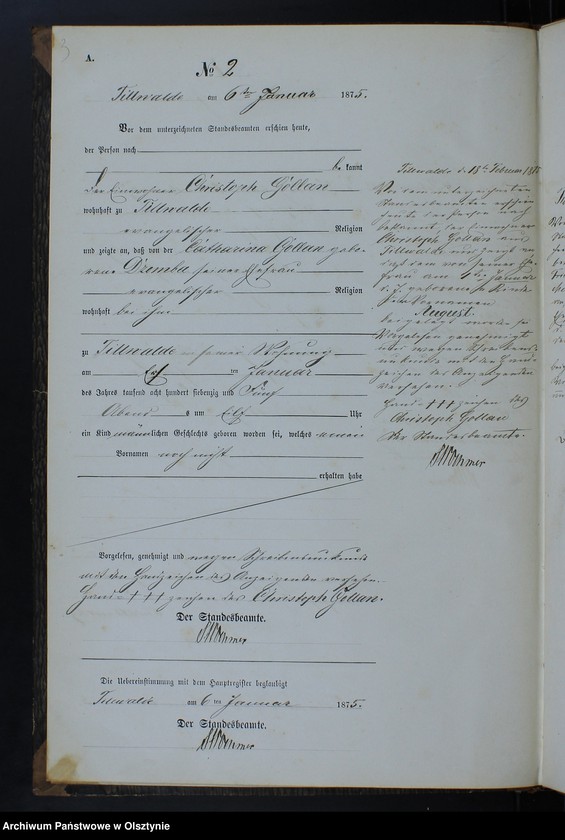 A.
No 2
Tillwalde am 6ten Januar 1875.
Vor dem unterzeichneten Standesbeamten erschien heute,
der Person nach
bekannt
der Einwohner Christoph Gollan
wohnhaft zu Tillwalde
evangelischer Religion
und zeigte an, daß von der Catharina Gollan gebo-
rene Dzemba seiner Ehefrau
evangelischer Religion
wohnhaft bei ihm
zu Tillwalde in seiner Wohnung
am ten Januar
des Jahres tausend acht hundert siebenzig und Fünf
Abends um Elf Uhr
ein Kind männlichen Geschlechts geboren worden sei, welches einen
Vornamen noch nicht
erhalten habe
Vorgelesen, genehmigt und wegen Schreibensunkunde
mit dem Handzeichen des Anzeigenden versehen.
Hand- +++ zeichen des Christoph Gollan.
Der Standesbeamte.
Die Uebereinstimmung mit dem Hauptregister beglaubigt
Tillwalde am 6ten Januar 1875.
Der Standesbeamte.
Tillwalde d. 18te Februar
Vor dem unterzeichneten
Standesbeamten erschien
heute der Person nach
bekannt, der Einwohner
Christoph Gollan aus
Tillwalde und zeigte an
daß dem von seiner Ehe-
frau am Januar
d. J. geborenen Kinde
der Vornamen
August
beigelegt worden sei
Vorgelesen genehmigt
und wegen Schreibens-
unkunde mit dem Hand-
zeichen des Anzeigenden
versehen.
Hand- +++ zeichen des
Christoph Gollan
Der Standesbeamte.
Archiwum Państwowe w Olsztynie